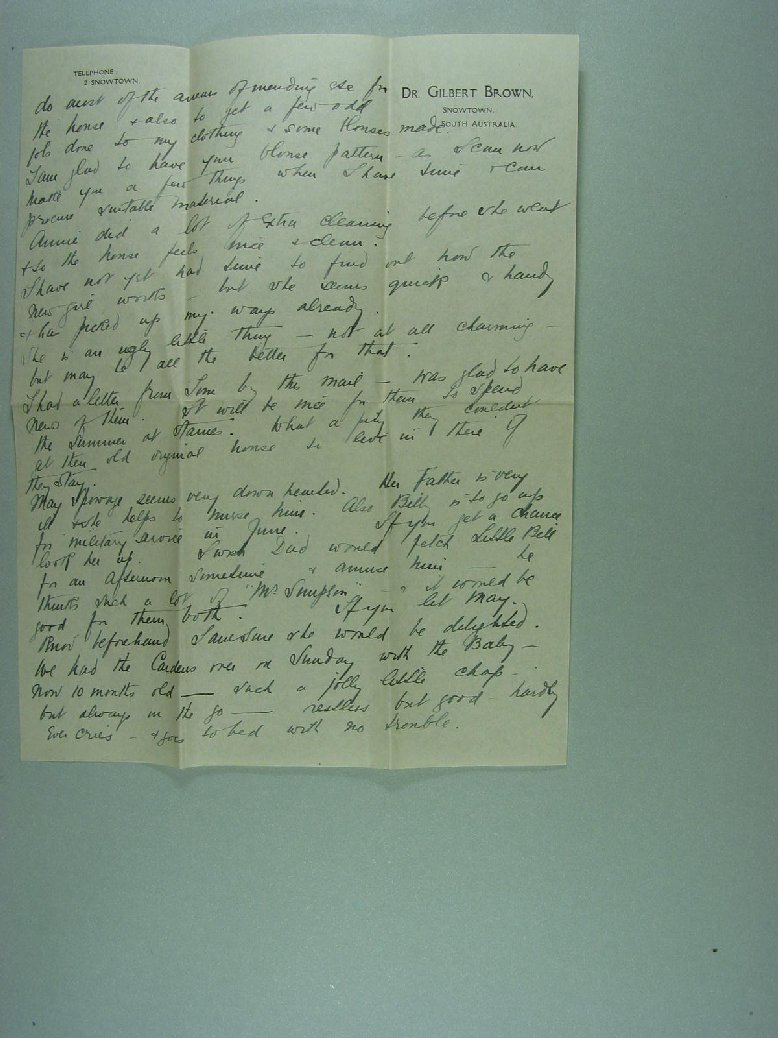 TELEPHONE
2 SNOWTOWN.
DR. GILBERT BROWN,
SNOWTOWN,
SOUTH AUSTRALIA.
do most of the arrears of mending etc for
the house & also to get a few odd
jobs done to my clothing & some blouses made
I am glad to have your blouse pattern - as I can now
make you a few things when I have time & can
procure suitable material.
Annie did a lot of extra cleaning before she went
& so the house feels nice & clean.
I have not yet had time to find out how the
new girl works - but she seems quick & handy
& has picked up my ways already.
She is an ugly little thing - not at all charming -
but may be all the better for that.
I had a letter from Tom by this mail - was glad to have
news of them. It will be nice for them to spend
the summer at . What a pity they couldn't
get their old original house to live in & there if
they stay.
May seems very down hearted. Her Father is very
ill & she helps to nurse him. Also Billy is to go up
for military service in June. If you get a chance
look her up. I wish Dad would fetch Little Bill
for an afternoon sometime & amuse him - he
thinks such a lot of "Mr Simpson" - & it would be
good for them both. If you let May
know beforehand I am sure she would be delighted.
We had the over on Sunday with the Baby -
now 10 months old — such a jolly little chap -
but always on the go — restless but good - hardly
ever cries - & goes to bed with no trouble.